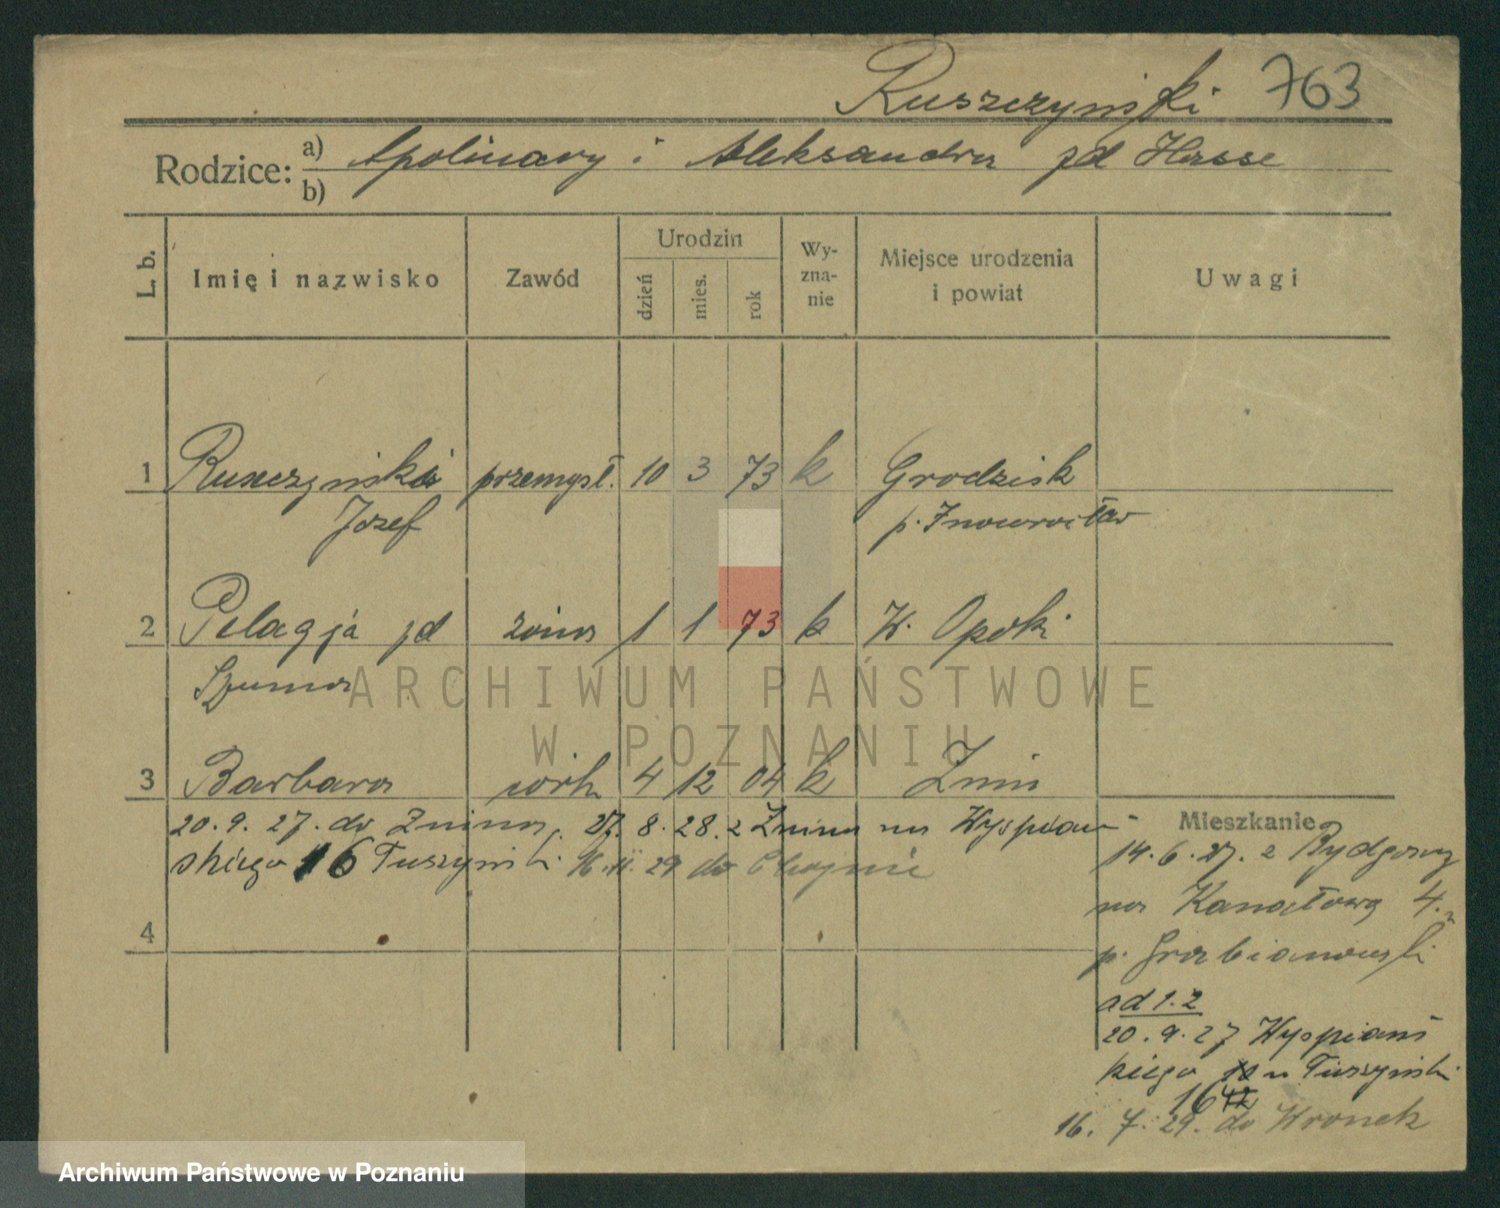 Ruszczyński 763
Rodzice: a) Apolinary i Aleksandra zd Hasse
b)
L. b. Imię i nazwisko Zawód Urodzin dzień mies. rok Wy-zna-nie Miejsce urodzenia i powiat Uwagi
1 Ruszczyński przemysł. 10 3 73 k Grodzisk
Józef p. Inowrocław
2 Pelagja zd żona 1 1 73 k W. Opoki
Szuman
ARCHIWUM PAŃSTWOWE
W POZNANIU
3 Barbara córk 4 12 04 k Żnin
20.9.27. do Żnina. 27.8.28. z Żnina na Wyspiań-
skiego 16 Tuszyński 16.11.29 do
4
Mieszkanie
14.6.27. z Bydgoszcz
na Kanałową 4.
p. Grabianowski
ad 1.2
20.9.27 Wyspiańs
kiego u Tuszyński
16
16. 7. 29. do Wronek
Archiwum Państwowe w Poznaniu